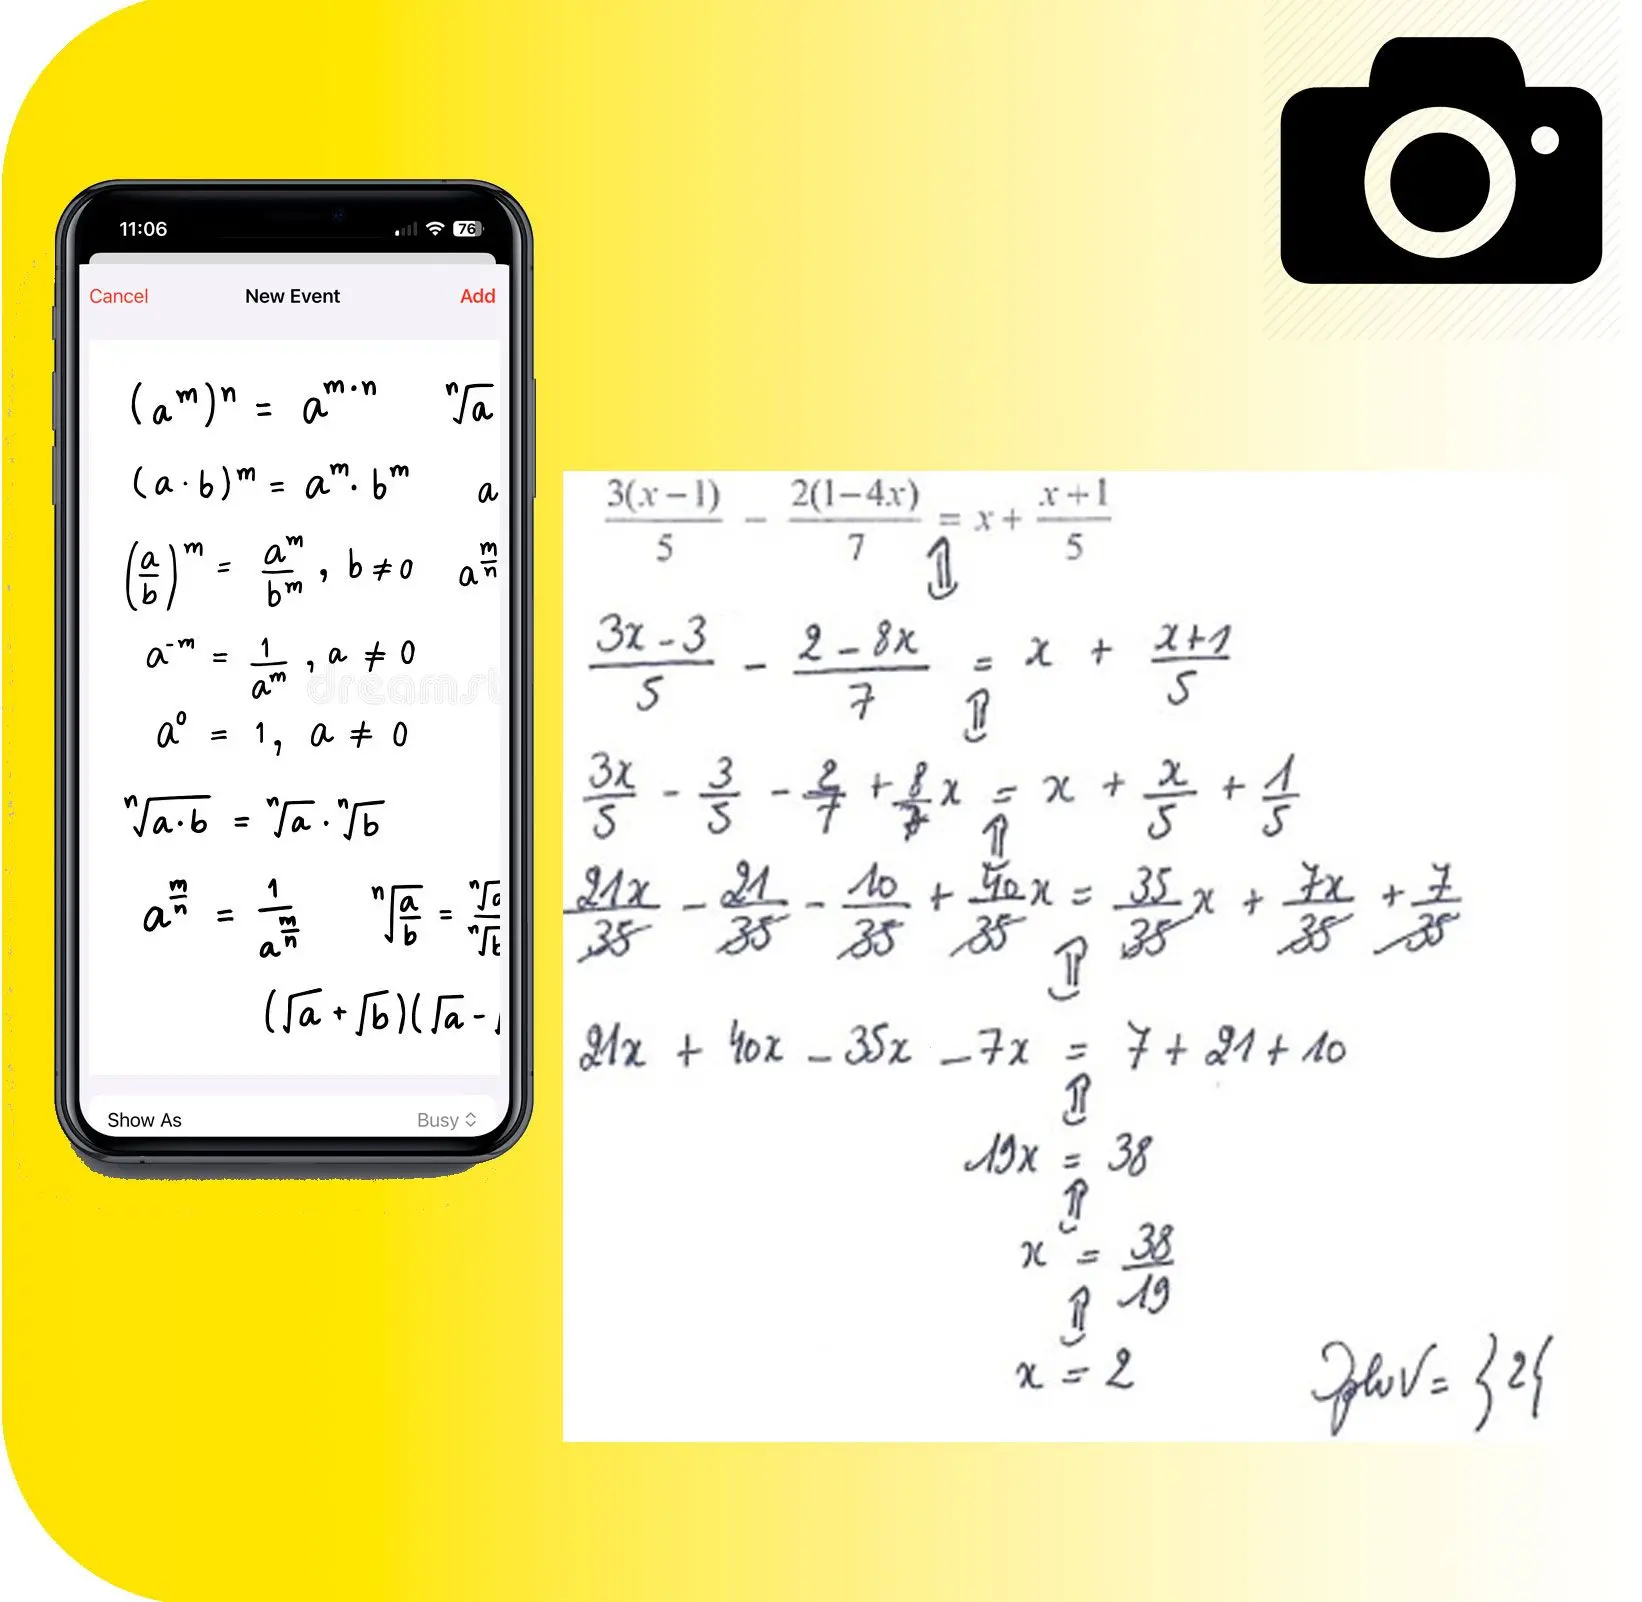 11:06 76
Cancel New Event Add
(a^m)^n = a^{m·n} ⁿ√a
(a · b)^m = a^m · b^m a
(a/b)^m = a^m/b^m, b ≠ 0 a^{m/n}
a^{-m} = 1/a^m, a ≠ 0
dreamst
a^0 = 1, a ≠ 0
ⁿ√(a·b) = ⁿ√a · ⁿ√b
a^{m/n} = 1/a^{m/n} ⁿ√(a/b) = ⁿ√a/ⁿ√b
(√a + √b)(√a -
Show As Busy
3(x−1)/5 − 2(1−4x)/7 = x + (x+1)/5
⇕
(3x − 3)/5 − (2 − 8x)/7 = x + (x+1)/5
⇕
3x/5 − 3/5 − 2/7 + 8/7 x = x + x/5 + 1/5
⇕
21x/35 − 21/35 − 10/35 + 40/35 x = 35/35 x + 7x/35 + 7/35
⇕
21x + 40x − 35x − 7x = 7 + 21 + 10
⇕
19x = 38
⇕
x = 38/19
⇕
x = 2
V = }2{